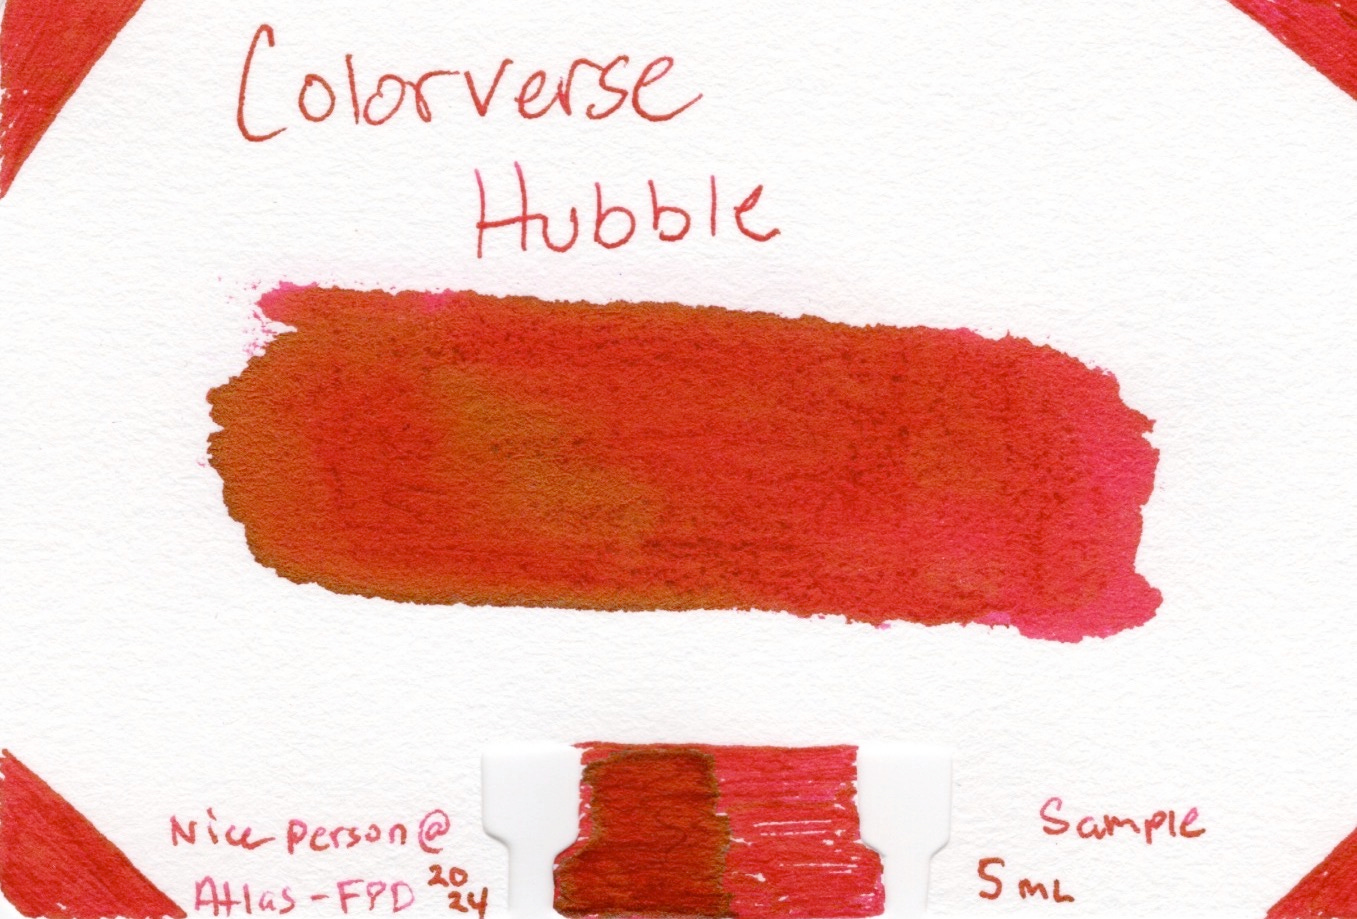 Colorverse
Hubble
Nice person @
Atlas-FPD 2024
Sample
5 mL